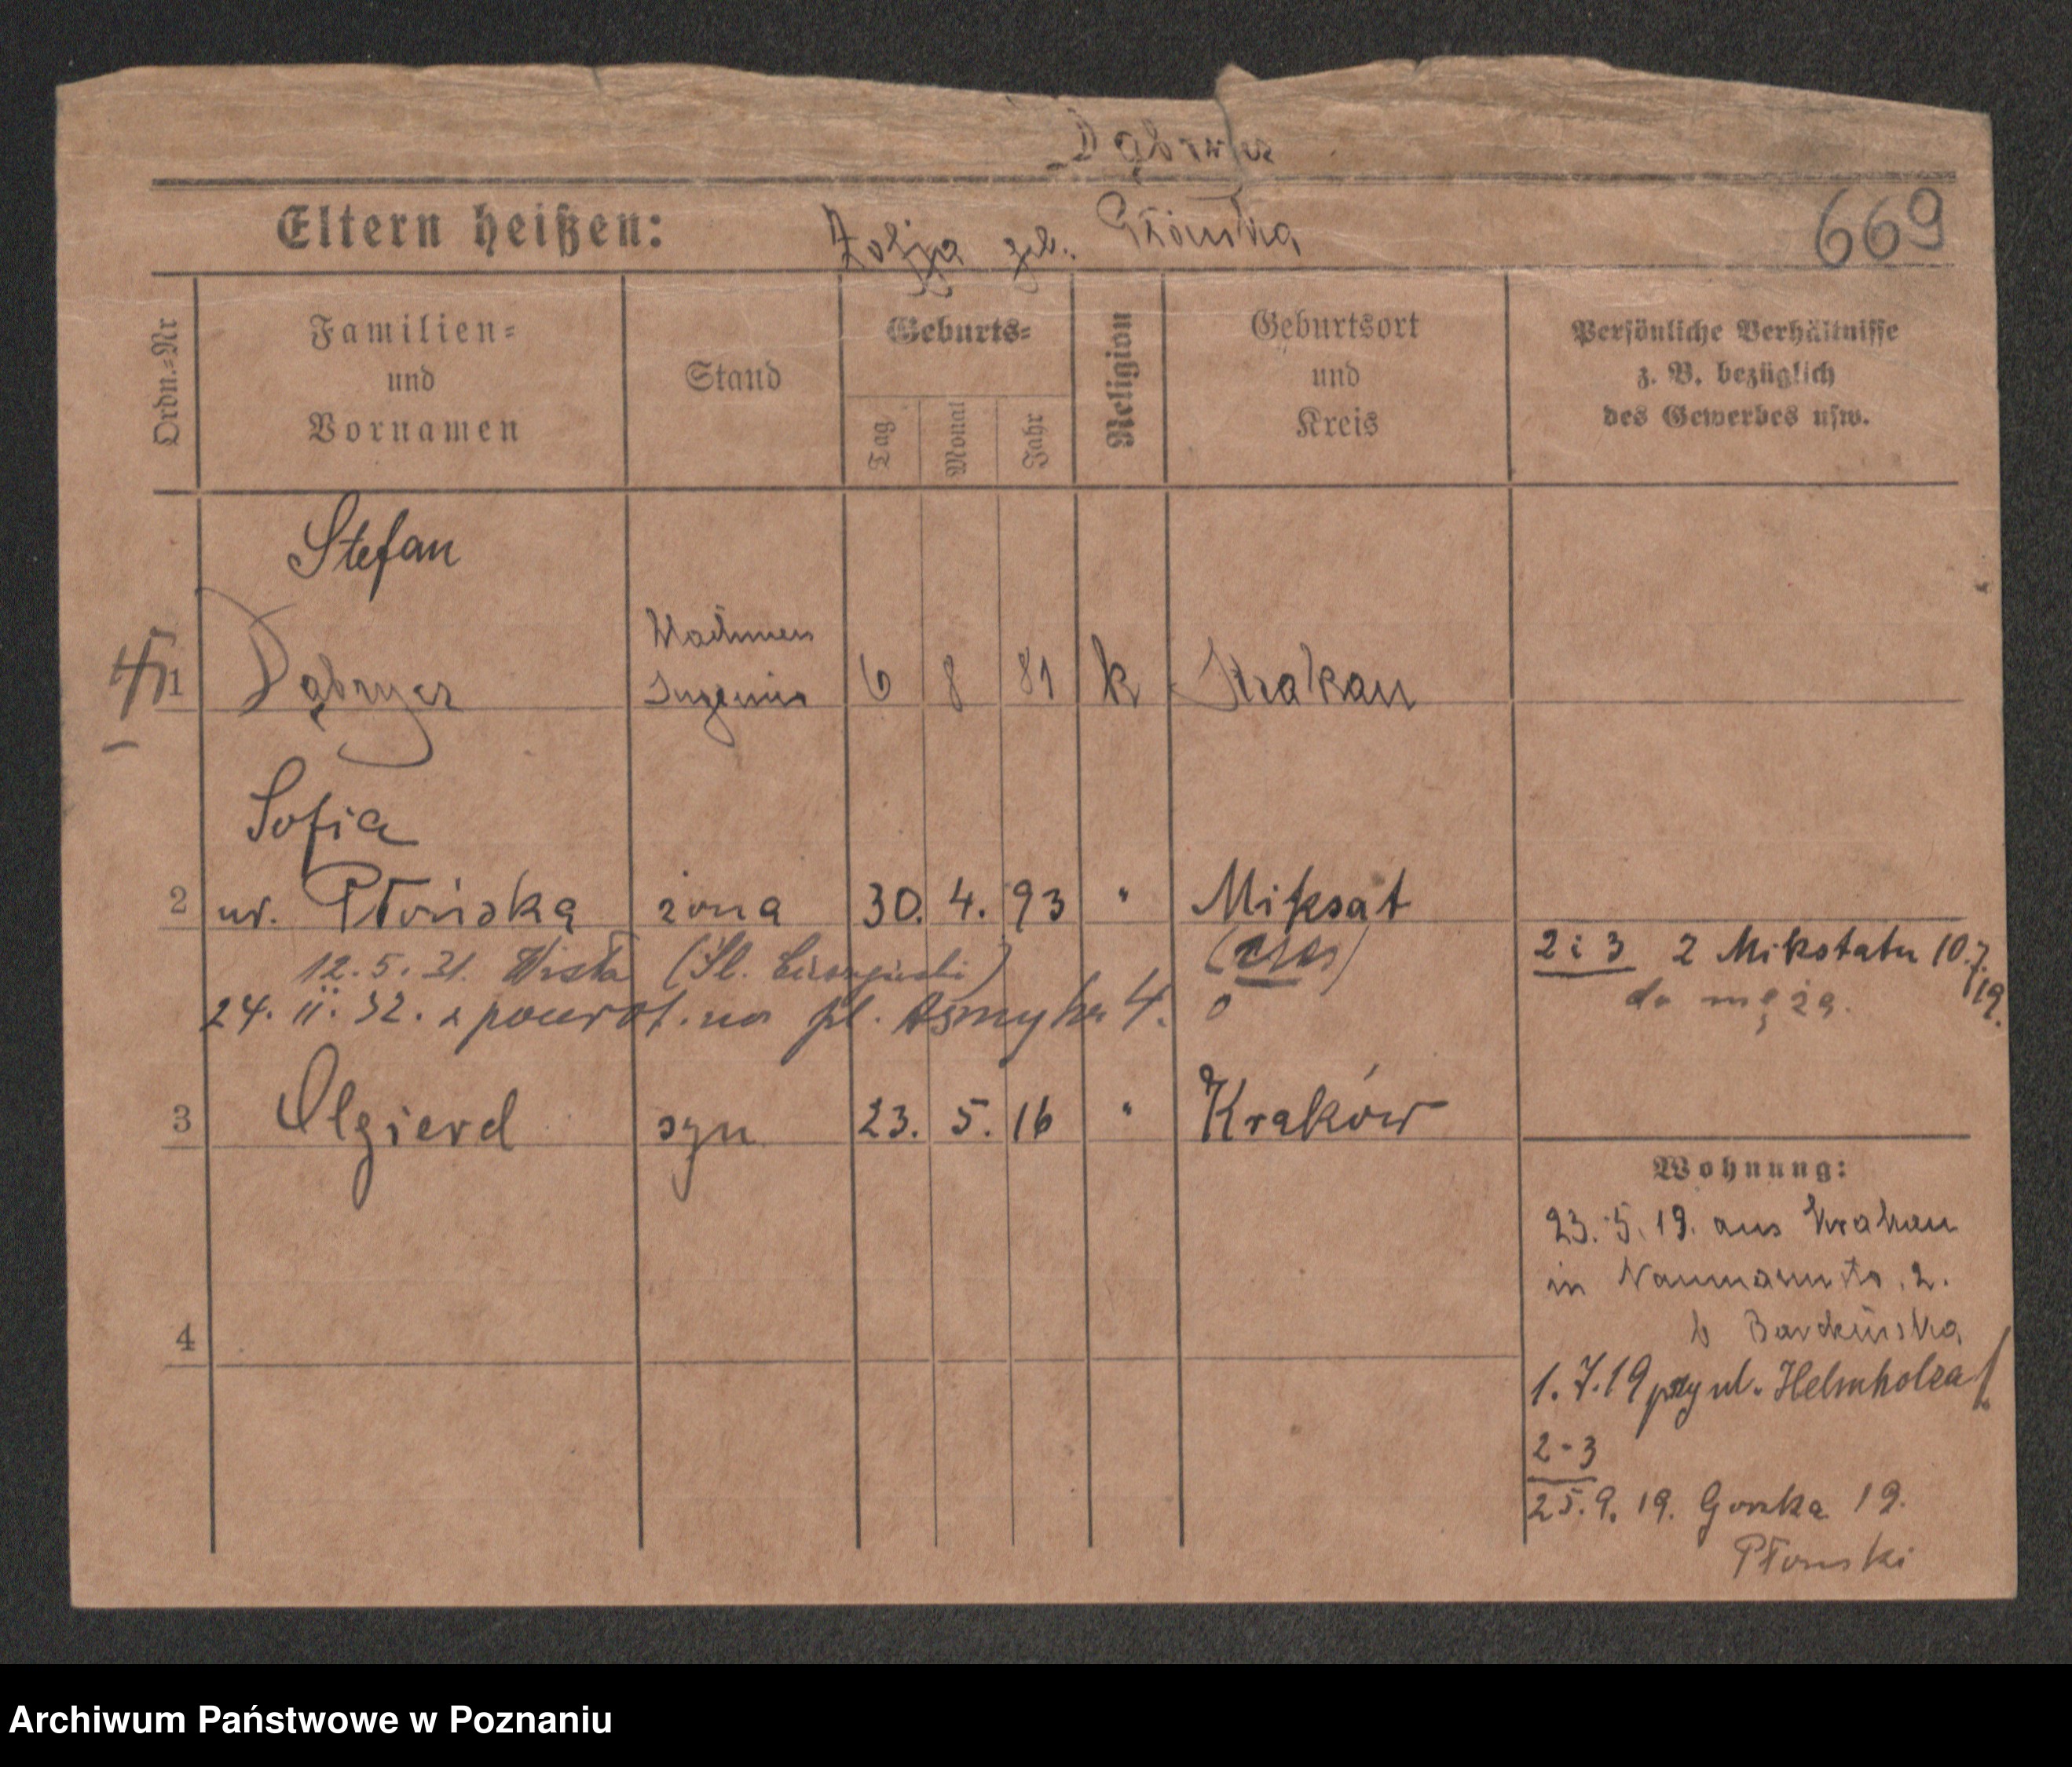 Eltern heißen:
Zofja geb. Płońska
669
Ordn.=Nr
Familien=
und
Vornamen
Stand
Geburts=
Tag
Monat
Jahr
Religion
Geburtsort
und
Kreis
Persönliche Verhältnisse
z. B. bezüglich
des Gewerbes usw.
Stefan
1
6 8 81 k Krakau
Sofia
2 ur. Płońska żona 30. 4. 93 " Miksat
12. 5. 31. Wisła (Śl.
24. II. 32. z powrot. na pl. Asnyka 4.
2 i 3 z Mikstatu 10.7.19.
do męża.
3 Olgierd syn 23. 5. 16 " Kraków
Wohnung:
23. 5. 19. aus Krakau
in Naumannstr. 2.
b
1.7.19 przy ul. Helmholza
4
2-3
25. 9. 19. 19.
Płonski
Archiwum Państwowe w Poznaniu